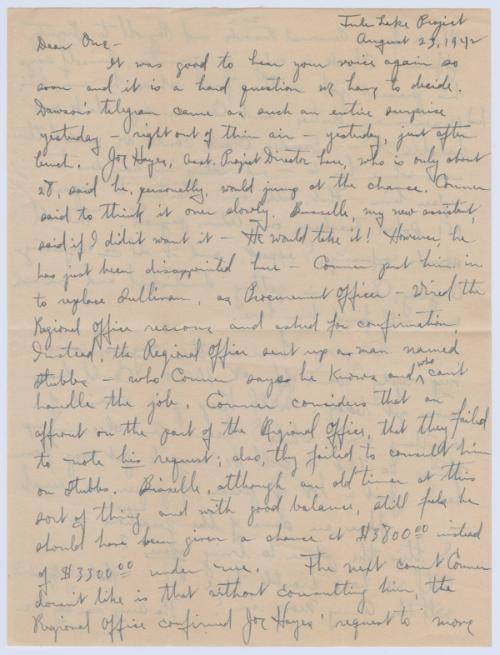 Tule Lake Project
August 23, 1942
Dear One -
It was good to hear your voice again so
soon and it is a hard question we have to decide.
Dawson's telegram came as such an entire surprise
yesterday - right out of thin air - yesterday, just after
lunch. Joe Hayes, Asst. Project Director here, who is only about
28, said he, personally, would jump at the chance. Conner
said to think it over slowly. my new assistant,
said if I didn't want it - He would take it! However, he
has just been disappointed here - Conner put him in
to replace Sullivan, as Procurement Officer - Wired the
Regional Office reasons and asked for confirmation.
Instead the Regional Office sent up a man named
Stubbs - who Conner says he knows and who can't
handle the job. Conner considers that an
affront on the part of the Regional Office, that they failed
to note his request; also, they failed to consult him
on Stubbs. although an old timer at this
sort of thing and with good balance, still feels he
should have been given a chance at $3800.00 instead
of $3300.00 under me. The next count Conner
doesn't like is that without consulting him, the
Regional Office confirmed Joe Hayes' request to move